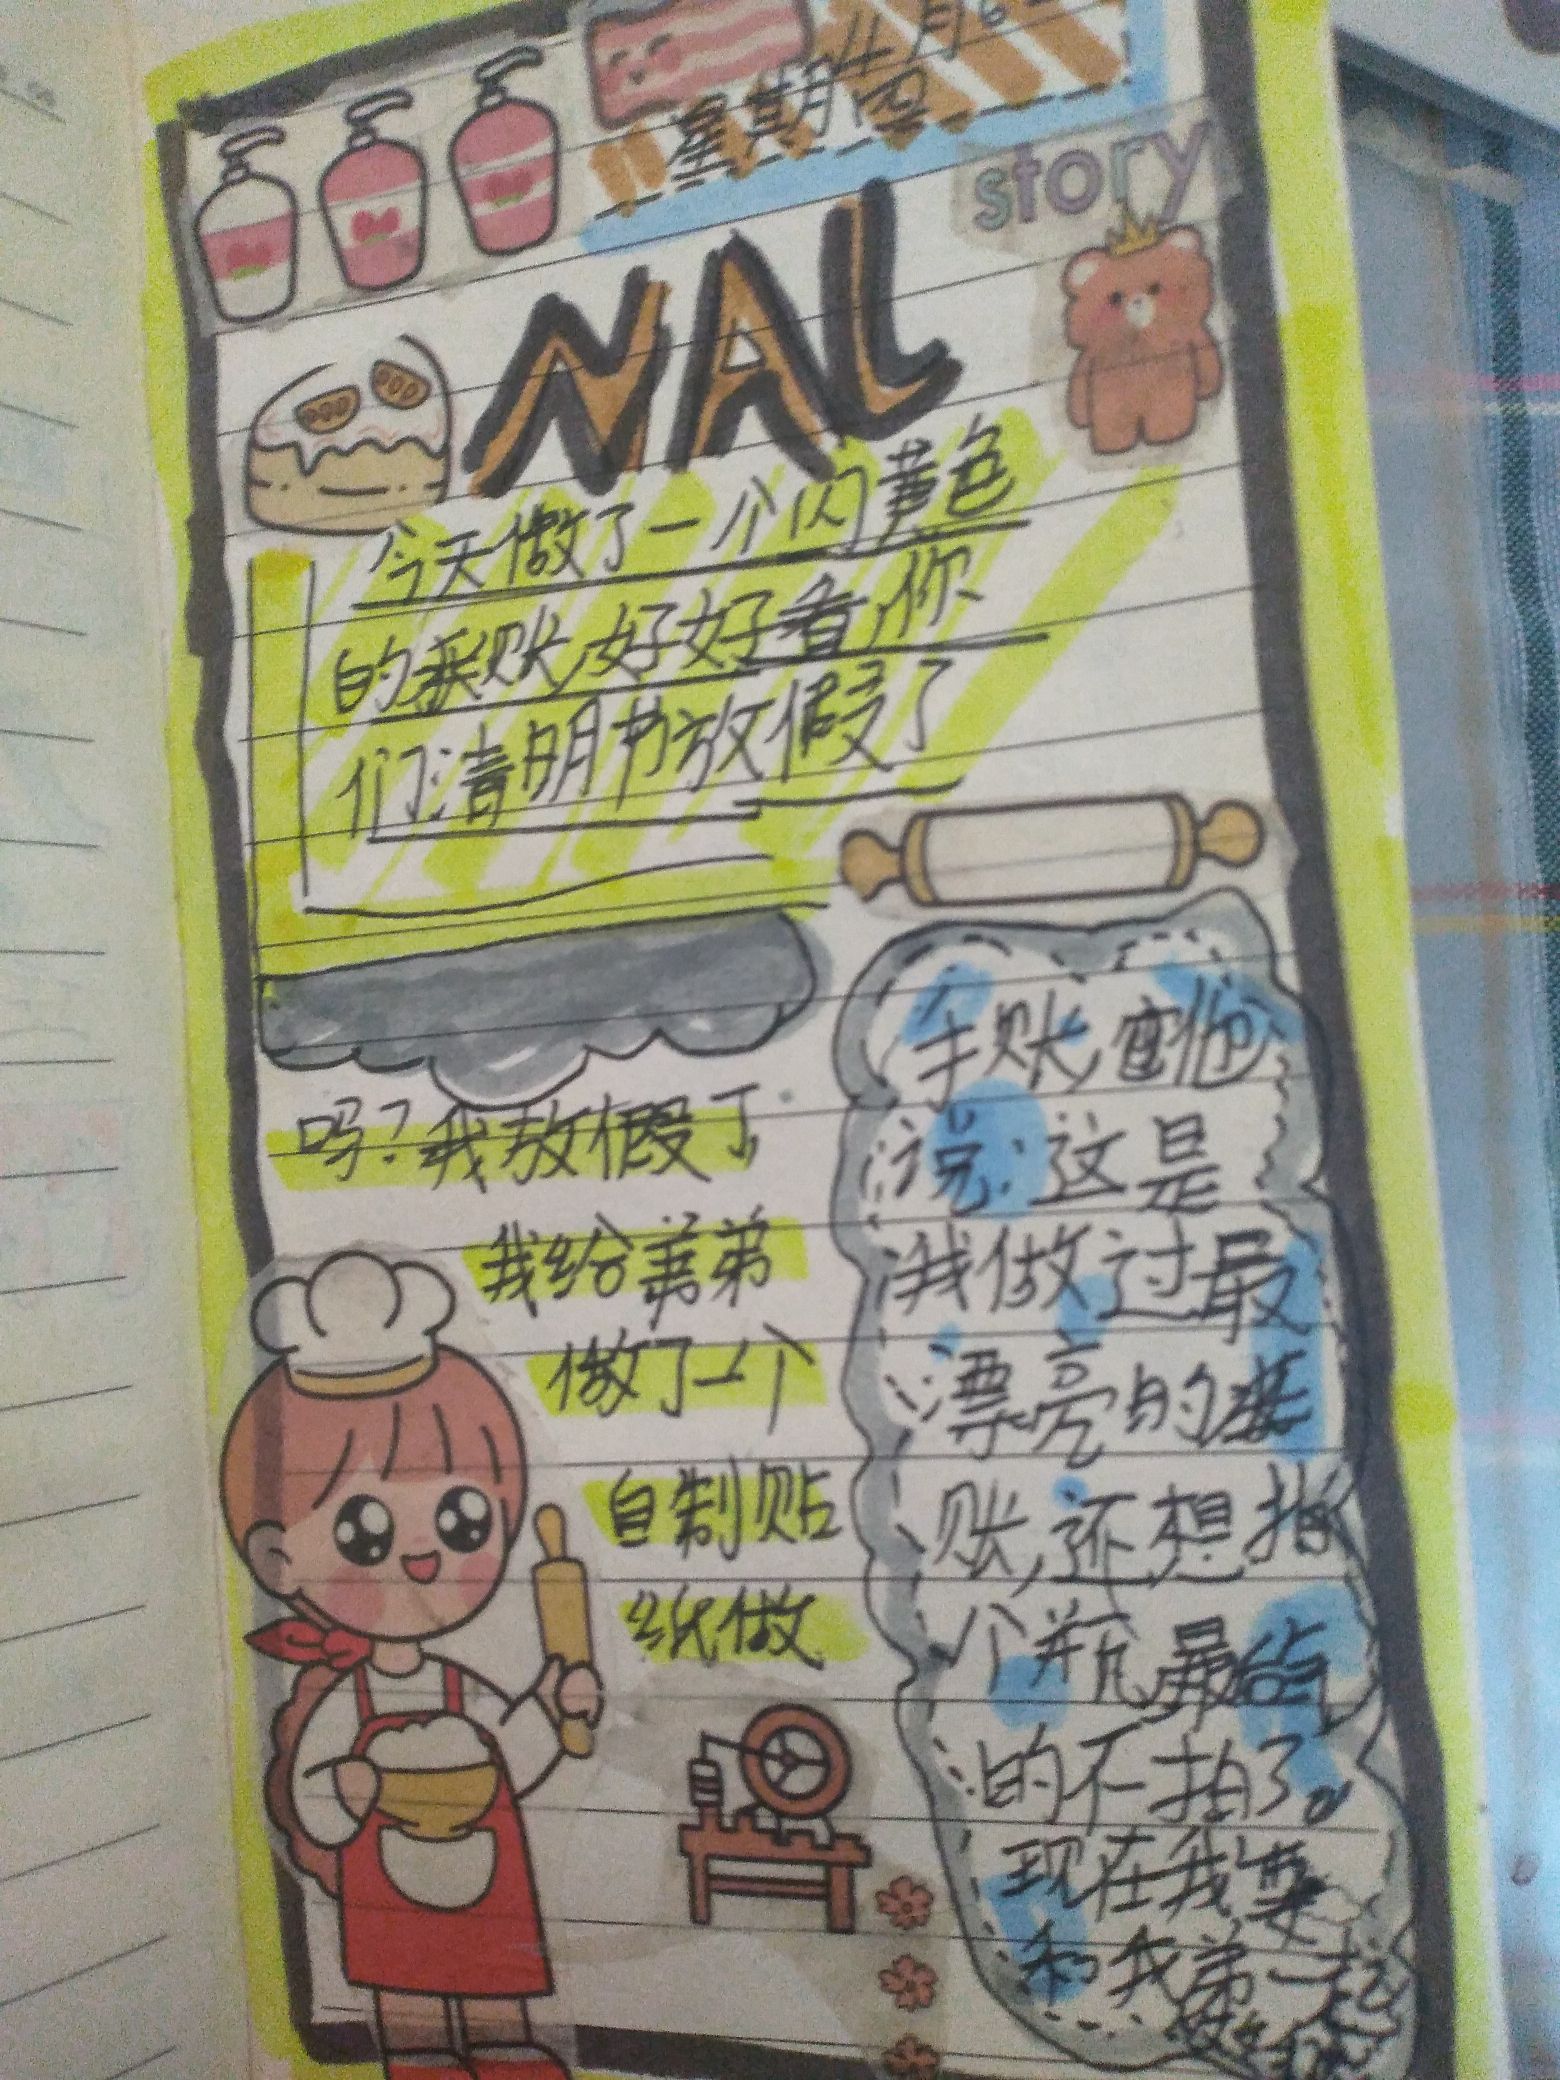 4月6
星期四
story
NAL
今天做了一个闪黄色
的装账,好好看,你
们清明节放假了
吗?我放假了
我给弟弟
做了一个
自制贴
纸做
手账,
说:这是
我做过最
漂亮的装
账,还想拍
个瓶
的不拍了。
现在我要
和我弟一起